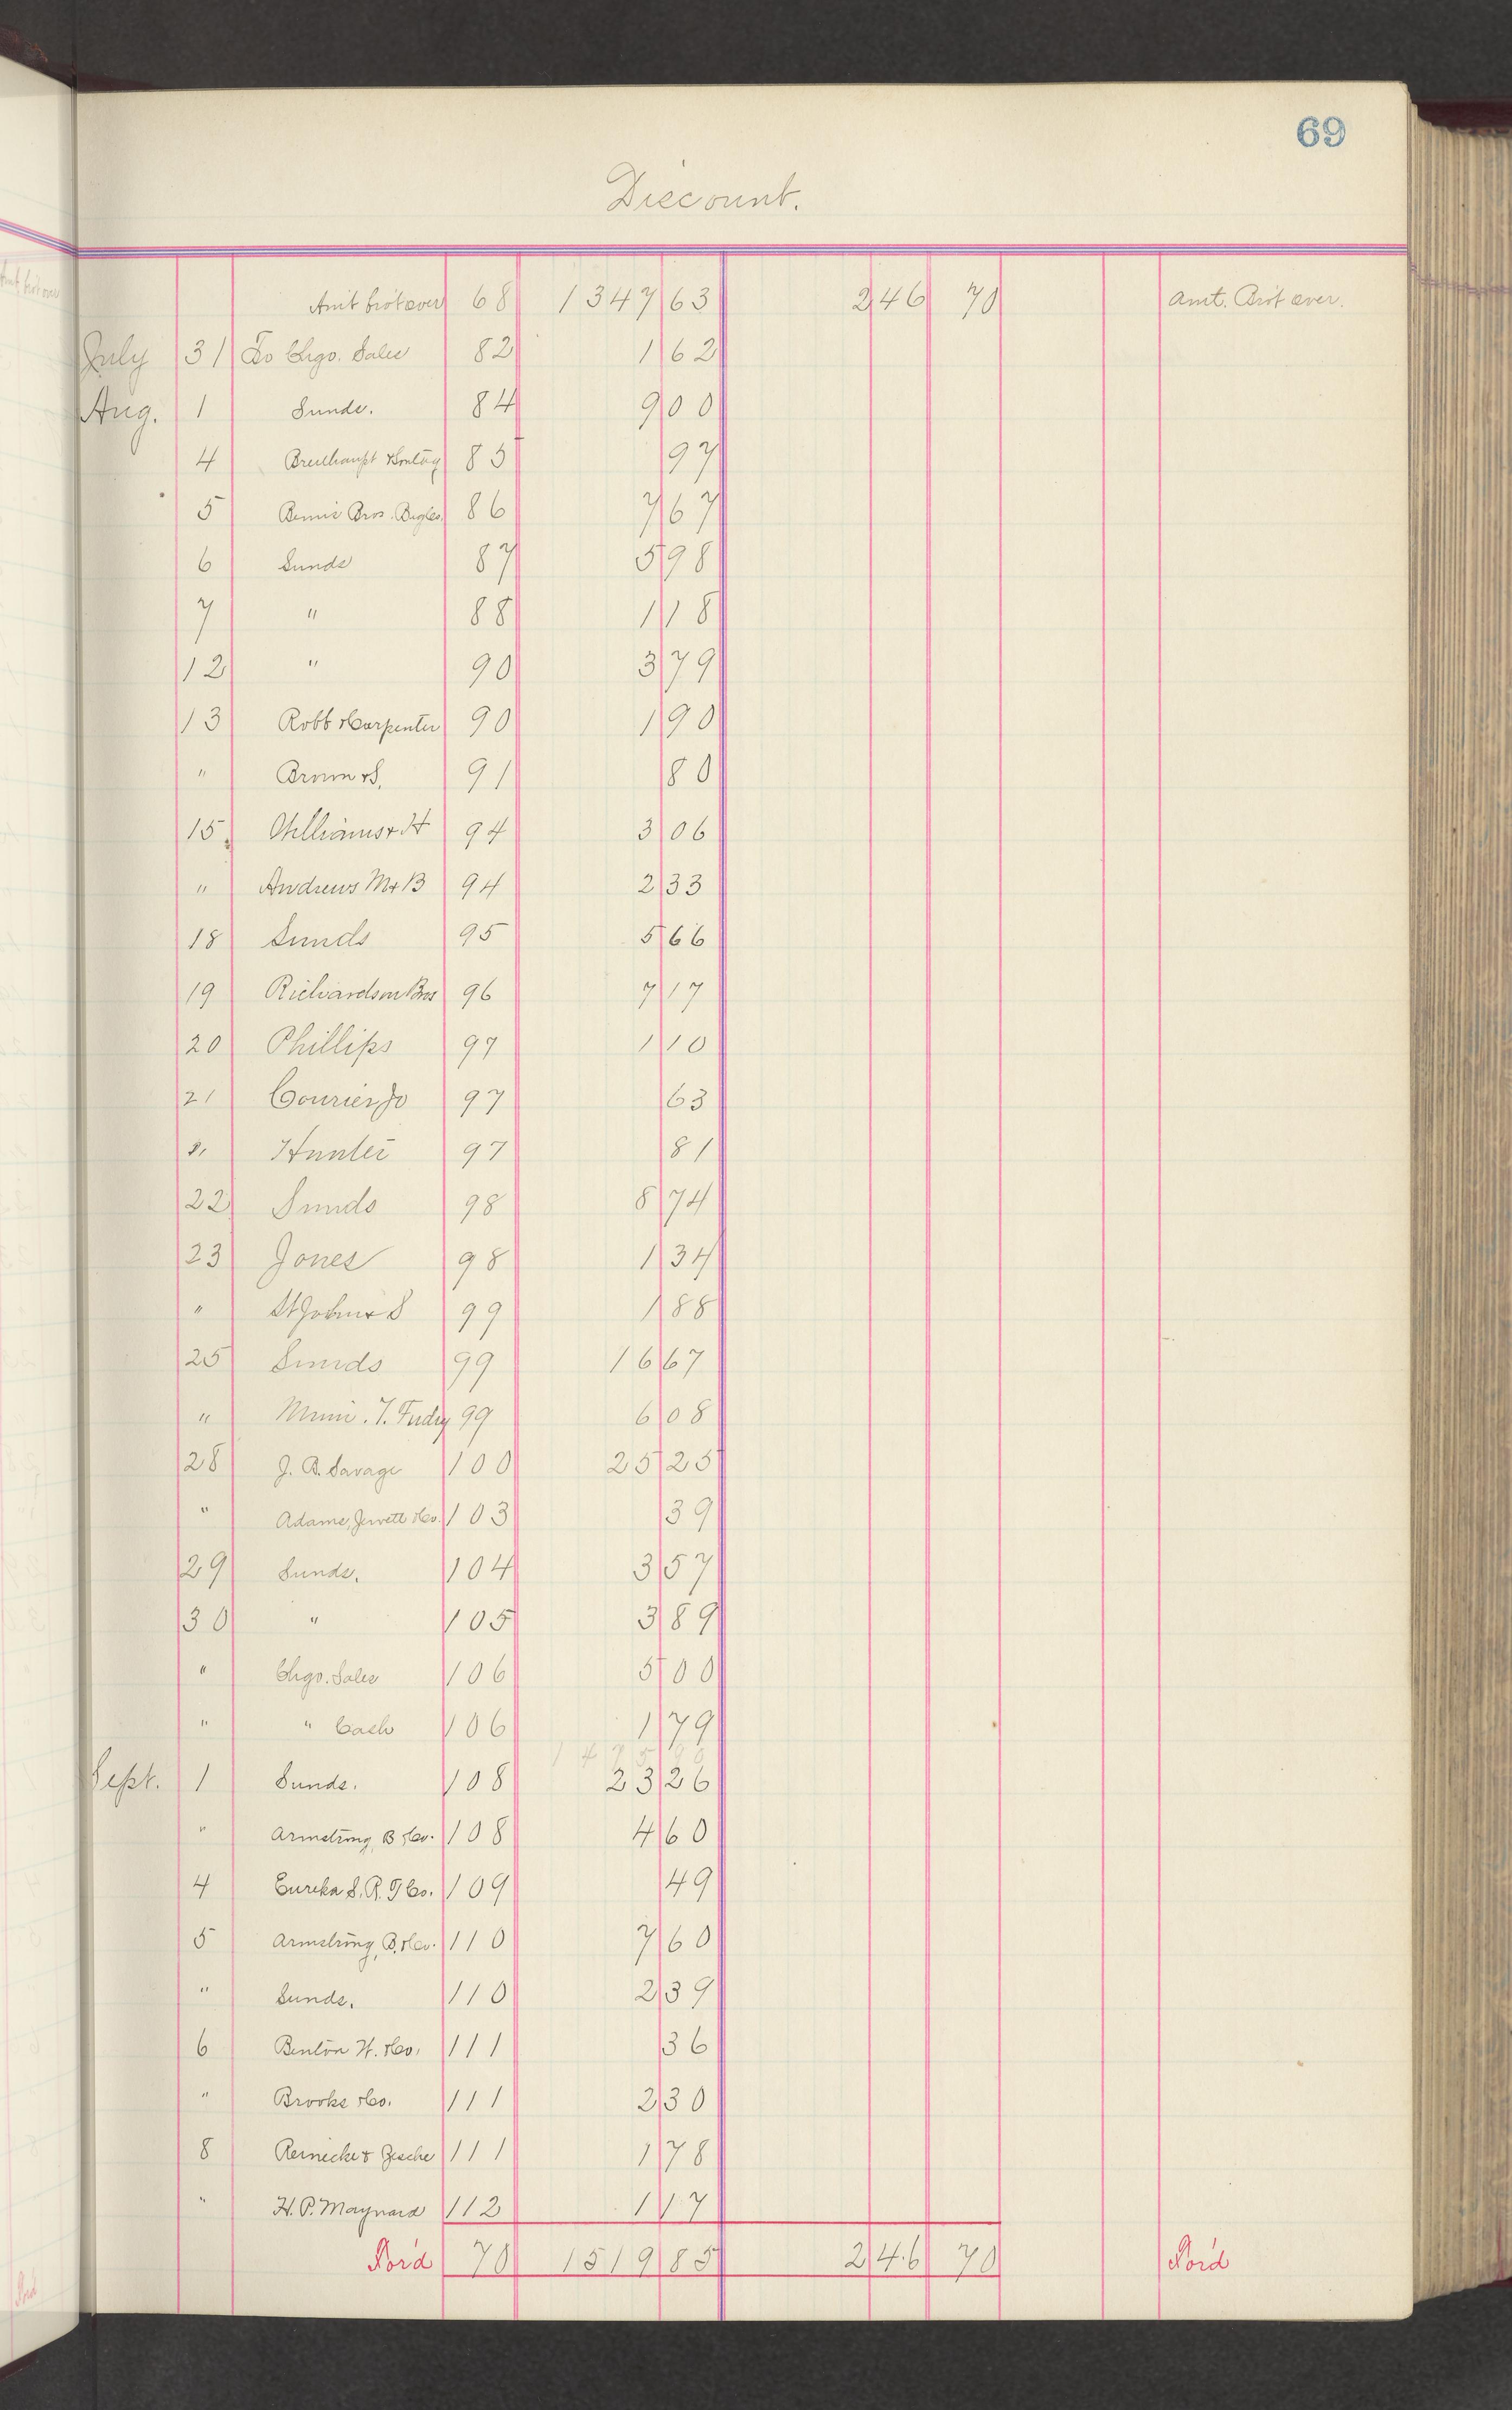 69
Discount.
Amt brot over 68 1347 63 246 70 Amt. Brot over.
July 31 To Chgo. Sales 82 1 62
Aug. 1 Sunds. 84 9 00
4 85 97
5 Bemis Bros. 86 7 67
6 Sunds 87 5 98
7 " 88 1 18
12 " 90 3 79
13 Robb & Carpenter 90 1 90
" Brown & S. 91 80
15 94 3 06
" Andrews M & B 94 2 33
18 Sunds 95 5 66
19 Richardson Bros 96 7 17
20 Phillips 97 1 10
21 Courier Jo 97 63
" Hunter 97 81
22 Sunds 98 8 74
23 Jones 98 1 34
" St John & S 99 1 88
25 Sunds 99 16 67
" 99 6 08
28 J. B. Savage 100 25 25
" Adams, Jewett & Co. 103 39
29 Sunds. 104 3 57
30 " 105 3 89
" Chgo. Sales 106 5 00
" " Cash 106 1 79
1475 90
Sept. 1 Sunds. 108 23 26
" Armstrong, B & Co. 108 4 60
4 Eureka S. R. G Co. 109 49
5 Armstrong, B. & Co. 110 7 60
" Sunds. 110 2 39
6 Benton H. & Co. 111 36
" Brooks & Co. 111 2 30
8 Reinecke & Zesche 111 1 78
" H. P. Maynard 112 1 17
For'd 70 1519 85 246 70 For'd